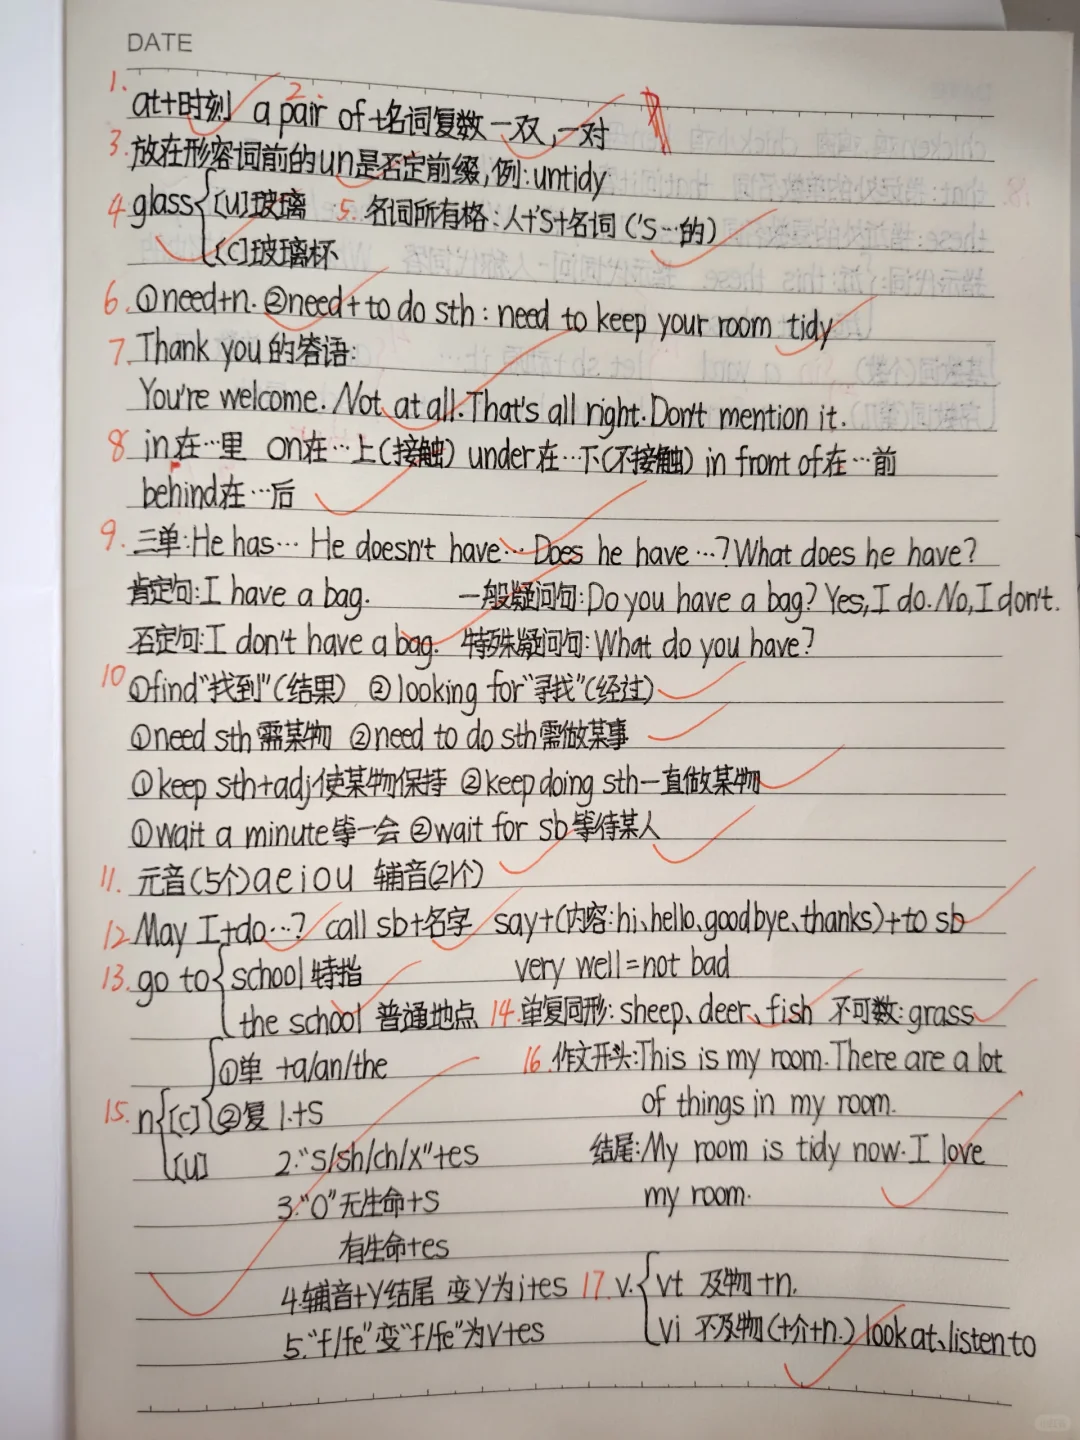 DATE
1. at+时刻 2. a pair of+名词复数 一双,一对
3. 放在形容词前的un是否定前缀,例:untidy
4. glass [U]玻璃 5. 名词所有格:人+'s+名词('s…的)
[C]玻璃杯
6. ①need+n. ②need+to do sth:need to keep your room tidy
7. Thank you的答语:
You're welcome. Not at all. That's all right. Don't mention it.
8 in在…里 on在…上(接触) under在…下(不接触) in front of在…前
behind在…后
9. 三单:He has… He doesn't have… Does he have…? What does he have?
肯定句:I have a bag. 一般疑问句:Do you have a bag? Yes, I do. No, I don't.
否定句:I don't have a bag. 特殊疑问句:What do you have?
10 ①find“找到”(结果) ②looking for“寻找”(经过)
①need sth需某物 ②need to do sth需做某事
①keep sth+adj使某物保持 ②keep doing sth一直做某物
①wait a minute等一会 ②wait for sb等待某人
11. 元音(5个)a e i o u 辅音(21个)
12 May I+do…? call sb+名字 say+(内容:hi、hello、goodbye、thanks)+to sb
13. go to school特指 very well=not bad
the school 普通地点 14. 单复同形:sheep、deer、fish 不可数:grass
①单 +a/an/the 16. 作文开头:This is my room. There are a lot
15. n [C] ②复 1.+s of things in my room.
[U] 2.“s/sh/ch/x”+es 结尾:My room is tidy now. I love
3.“o”无生命+s my room.
有生命+es
4.辅音+y结尾 变y为i+es 17. v. vt 及物+n.
5.“f/fe”变“f/fe”为v+es vi 不及物(+介+n.) look at、listen to